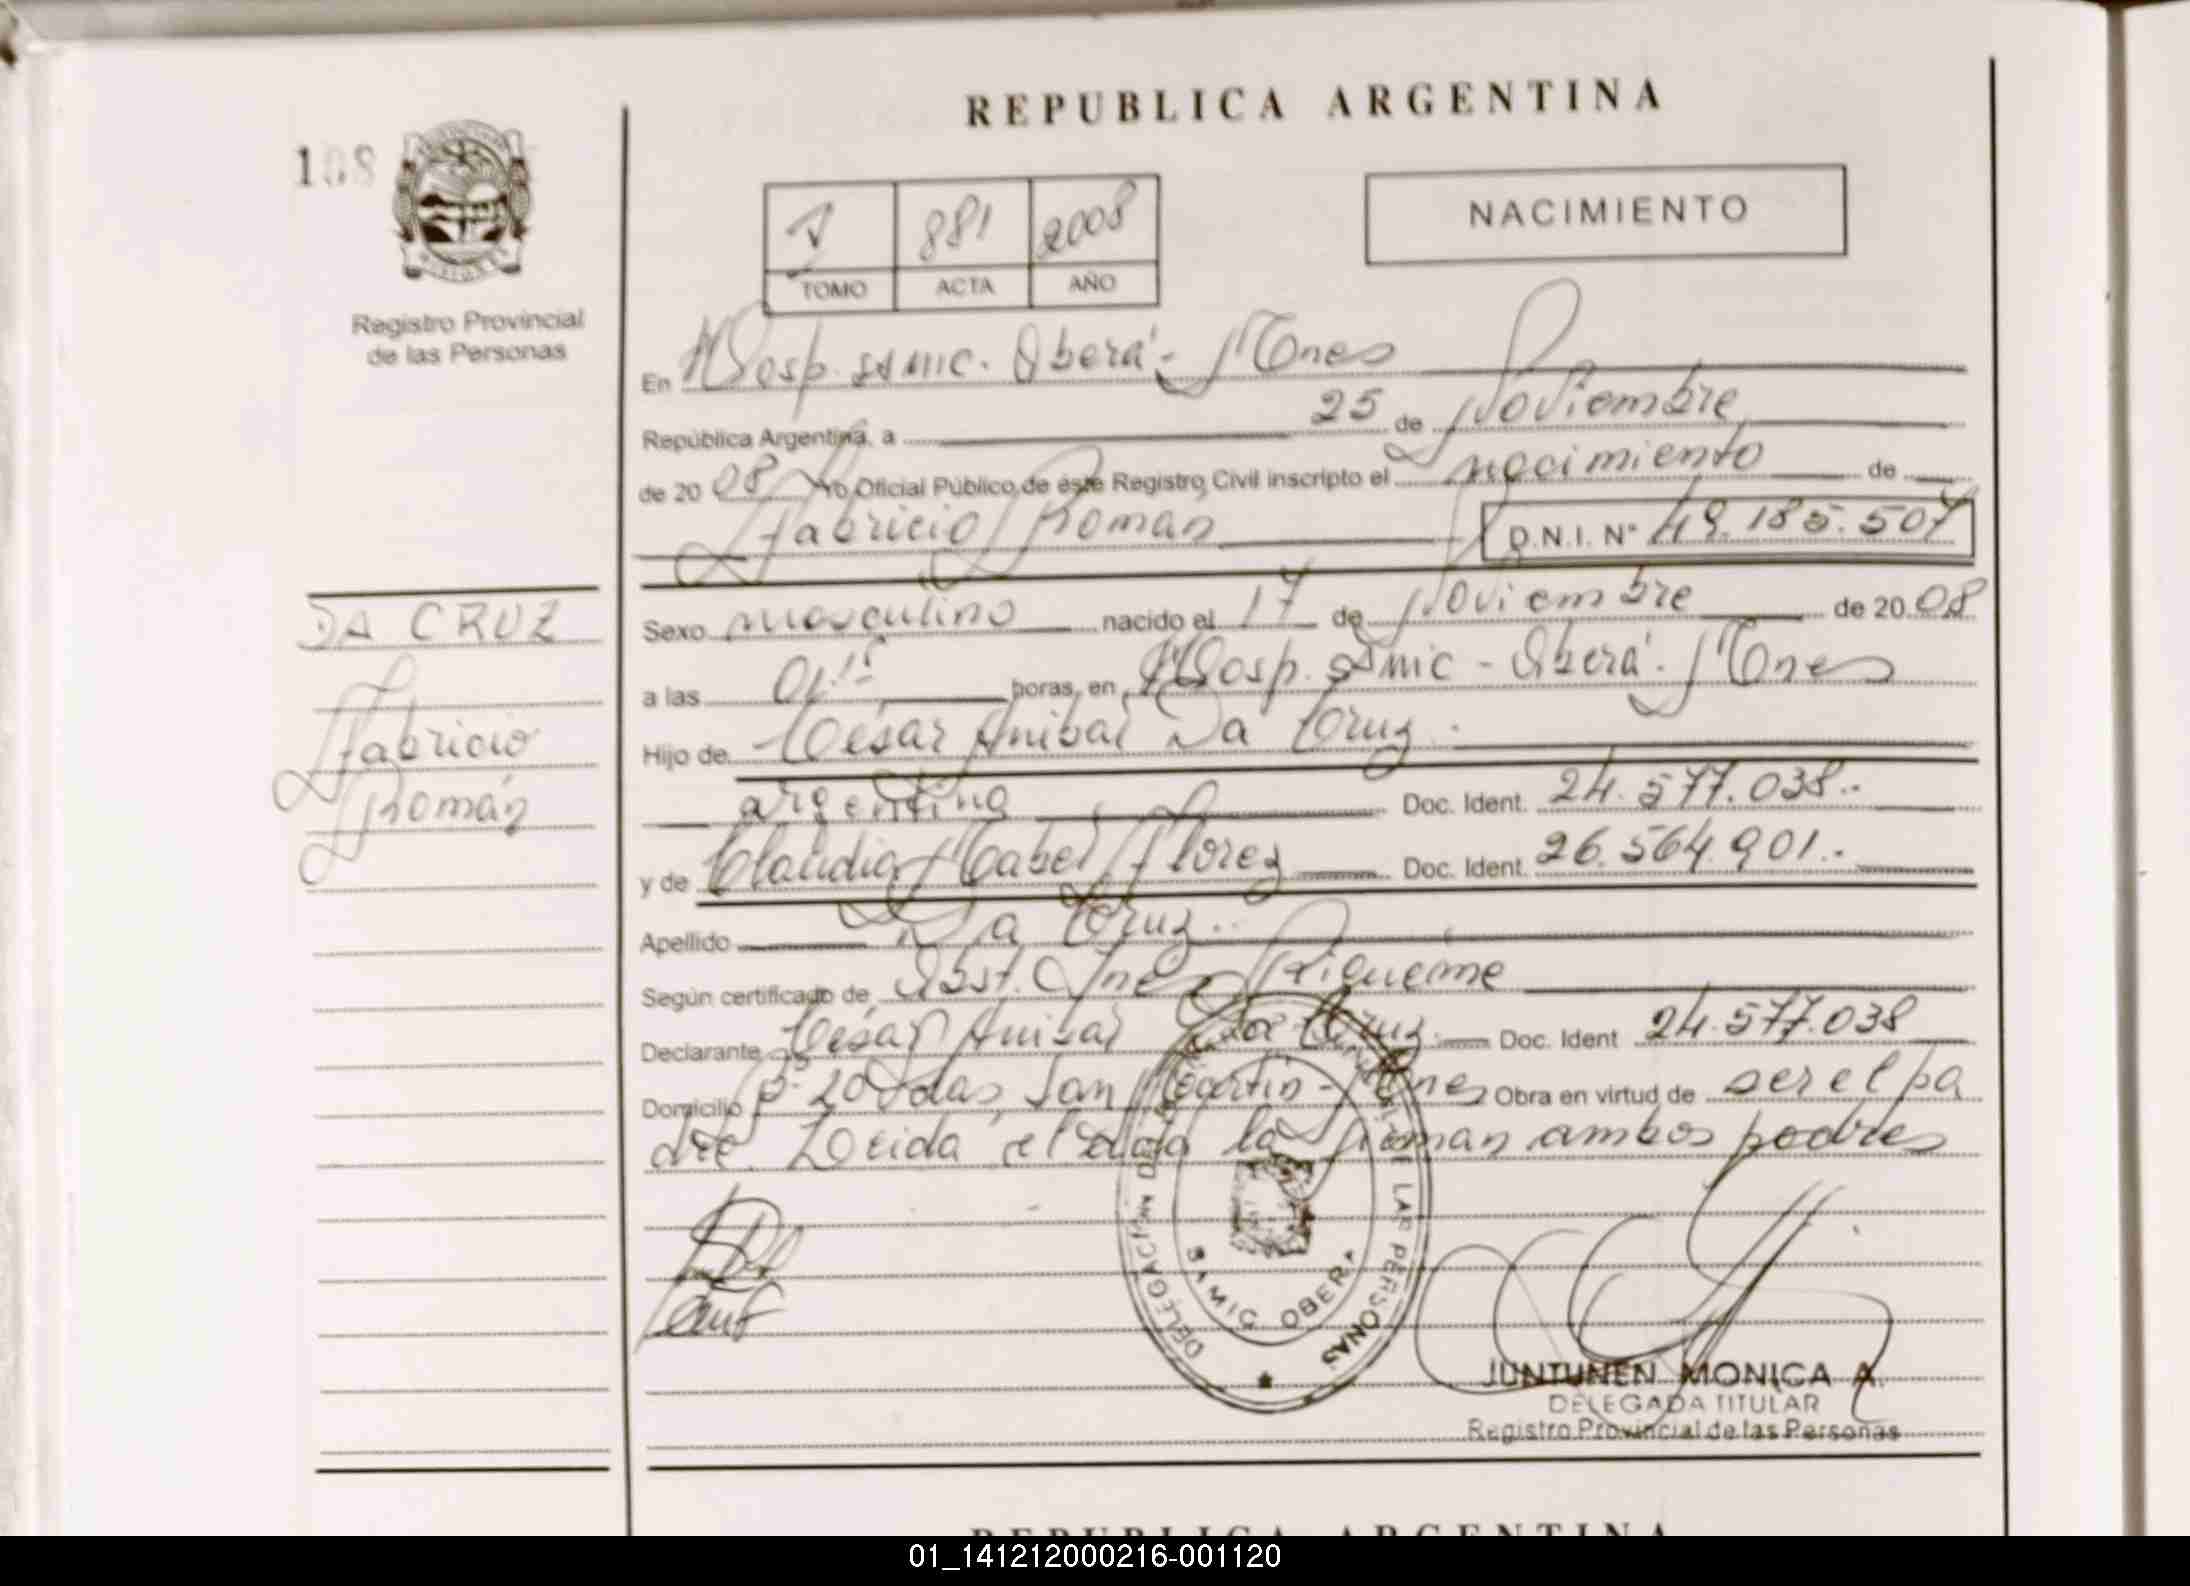 REPUBLICA ARGENTINA
108
1 881 2008
TOMO ACTA AÑO
NACIMIENTO
Registro Provincial
de las Personas
En Hosp. SAMIC. Oberá - Mnes
República Argentina, a 25 de Noviembre
de 2008 Yo Oficial Público de éste Registro Civil inscripto el nacimiento de
Fabricio Román D.N.I. N° 49.185.507
DA CRUZ
Fabricio
Román
Sexo masculino nacido el 17 de Noviembre de 2008
a las 01.15 horas, en Hosp. Samic - Oberá - Mnes
Hijo de César Anibal Da Cruz.
argentino Doc. Ident. 24.577.038.-
y de Claudia Mabel Florez Doc. Ident. 26.564.901.-
Apellido Da Cruz..
Según certificado de Obst. Ines
Declarante César Anibal Da Cruz. Doc. Ident 24.577.038
Domicilio San Martín - Mnes Obra en virtud de ser el pa
dre. Leida el acta la firman ambos padres
DELEGACION DE LAS PERSONAS
SAMIC OBERA
JUNTUNEN MONICA A.
DELEGADA TITULAR
Registro Provincial de las Personas
REPUBLICA ARGENTINA
01_141212000216-001120